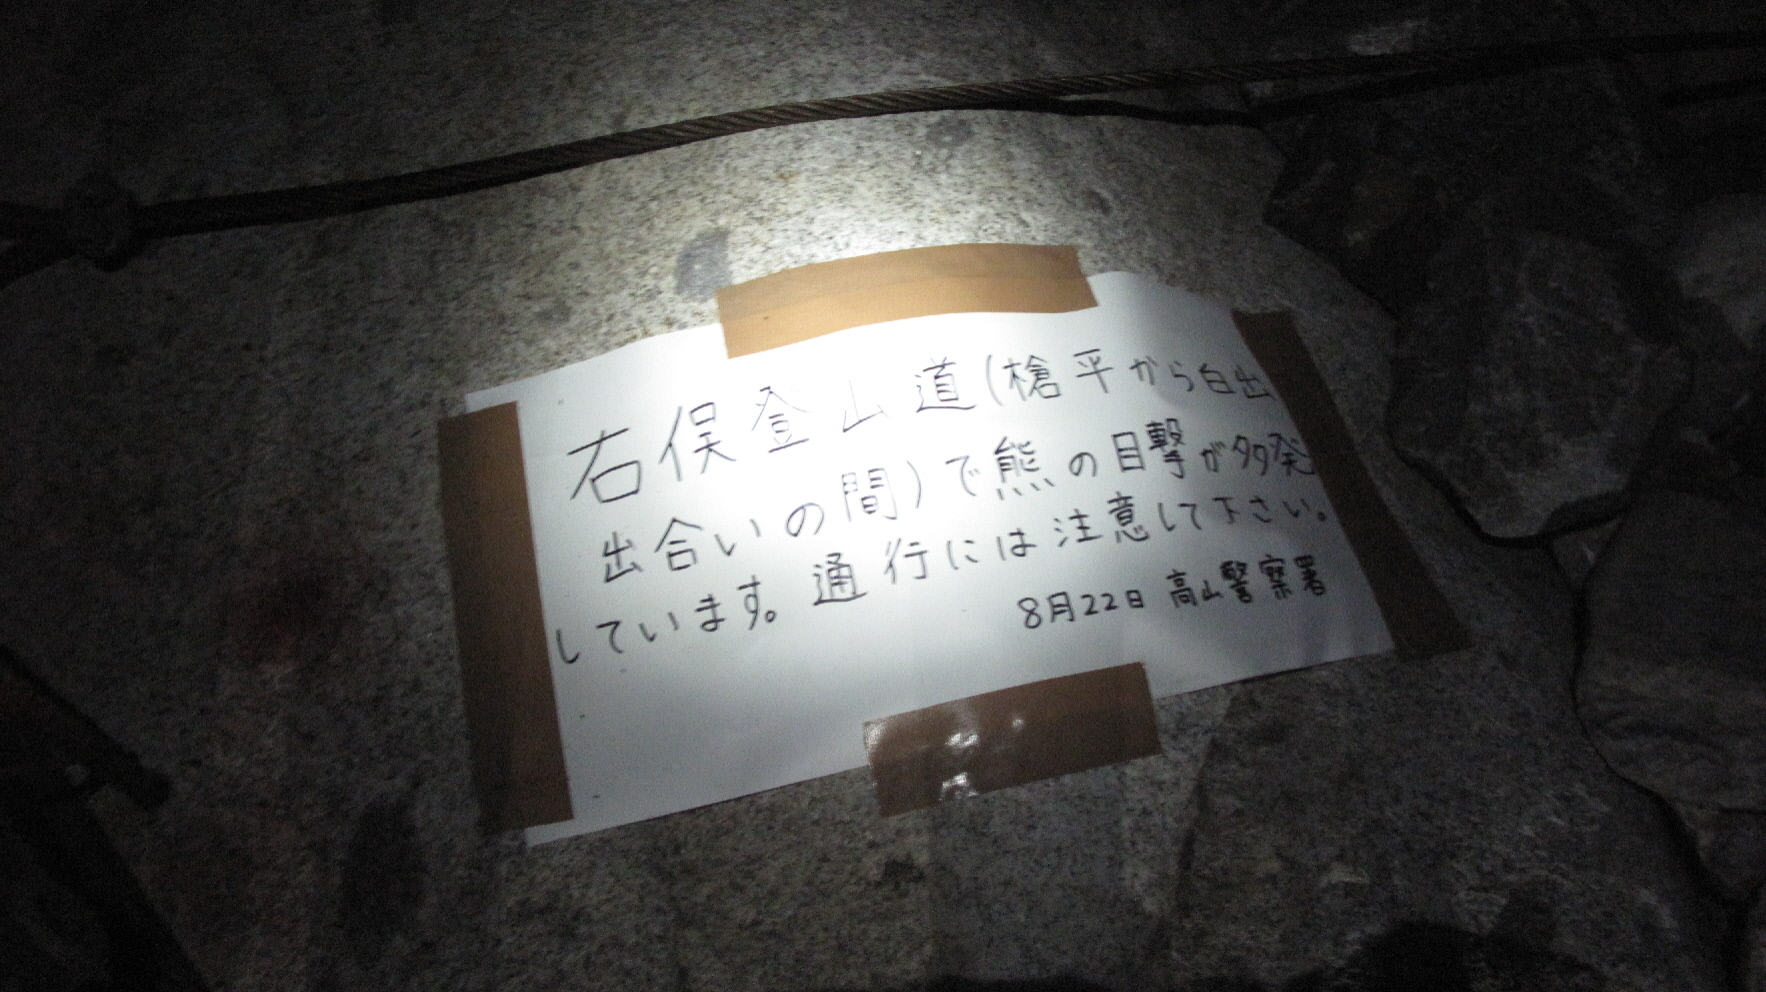 右俣登山道(槍平から白出
出合いの間)で熊の目撃が多発
しています。通行には注意して下さい。
8月22日 高山警察署